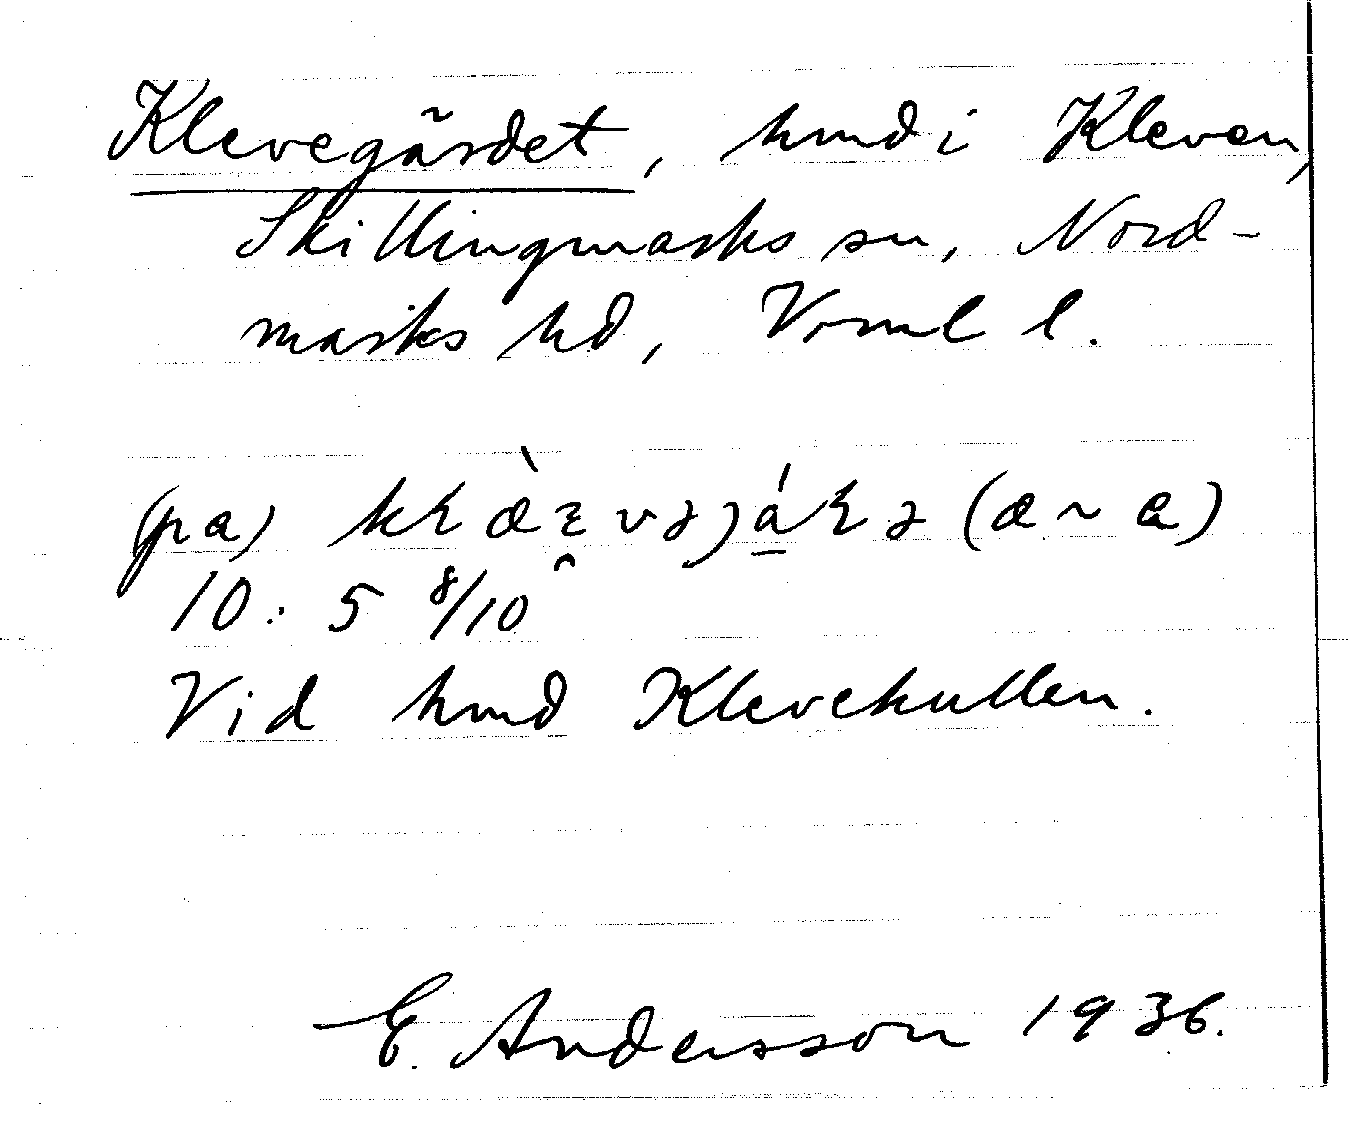 Klevegärdet, hmd i Kleven,
Skillingmarks sn, Nord-
marks hd, Vrml l.
(pa)
10:5 8/10
Vid hmd Klevekullen.
E. Andersson 1936.